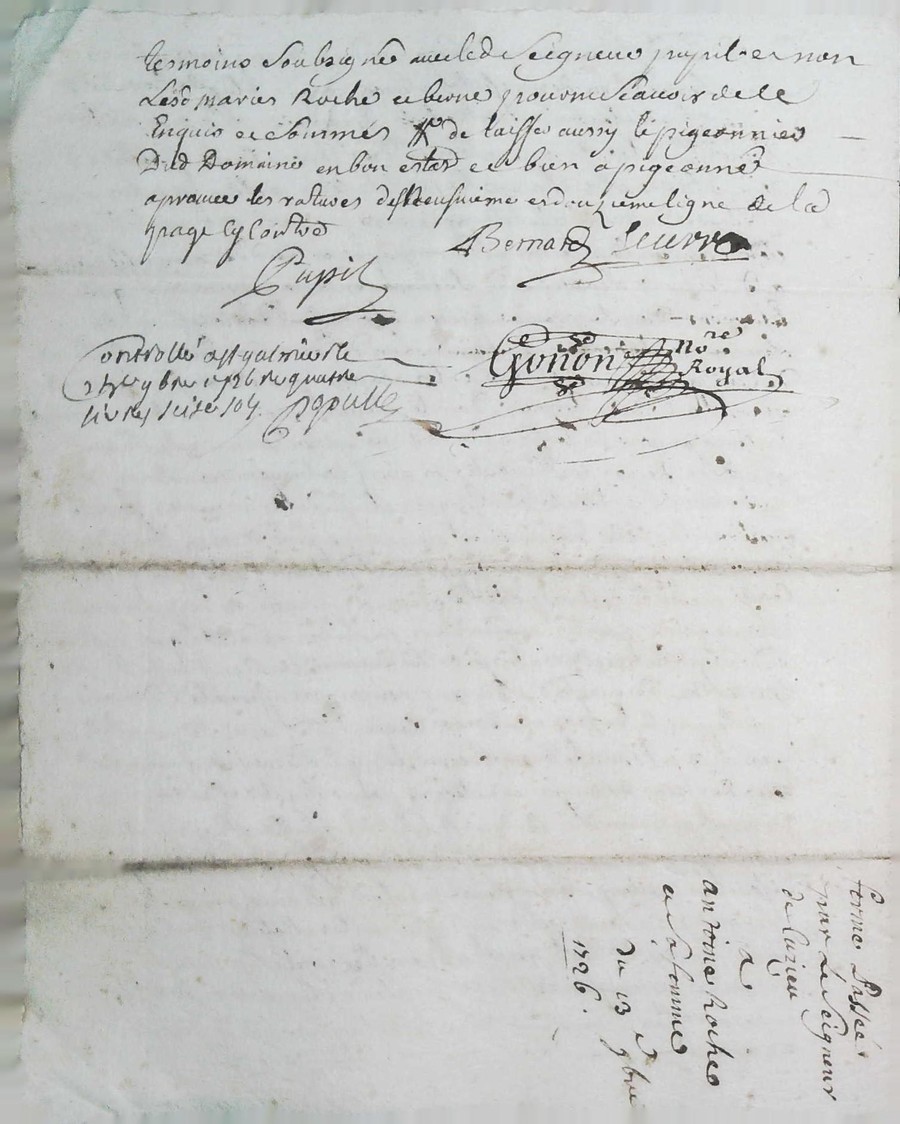 tesmoins soubsignés avec led Seigneur pupil et non
Lesd mariés Roche et berne pour ne scavoir de ce
Enquis et sommés de laisser aussy le pigeonnier
Dud Domaine en bon estat et bien apigeonné
aprouvee les ratures et douzieme ligne de la
page cy contre
Bernard
Pupil
Controllé a St galmier le
9bre 1726 re quatre
livres seize sols
Gonon no.re
Royal
ferme Passée
par Le Seigneur
de Cuzieu
a
antoine Roche
et sa femme
du 13 e 9bre
1726.